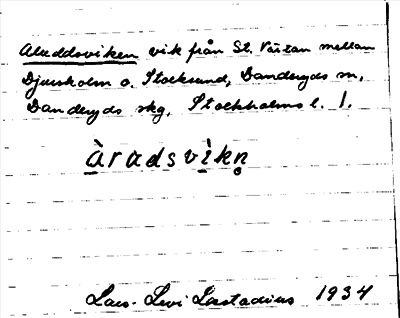 Aluddsviken vik från St. Värtan mellan
Djursholm o. Stocksund, Danderyds sn,
Danderyds skg, Stockholms l. 1.
àradsvìkn̥
Lars-Levi Læstadius 1934